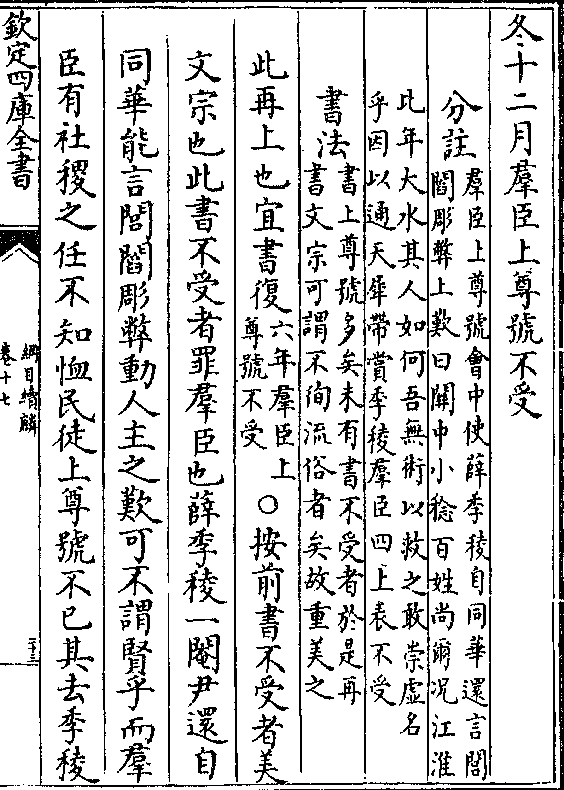 冬十二月羣臣上尊號不受
分註
羣臣上尊號會中使薛季稜自同華還言閭
閻彫弊上歎曰關中小稔百姓尚爾况江淮
比年大水其人如何吾無術以救之敢崇虚名
乎因以通天犀帶賞季稜羣臣四上表不受
書法
書上尊號多矣未有書不受者於是再
書文宗可謂不徇流俗者矣故重美之
此再上也宜書復
六年羣臣上
尊號不受
○按前書不受者美
文宗也此書不受者罪羣臣也薛季稜一閹尹還自
同華能言閭閻彫弊動人主之歎可不謂賢乎而羣
臣有社稷之任不知恤民徒上尊號不已其去季稜
欽定四庫全書
綱目續麟
卷十七
二十三